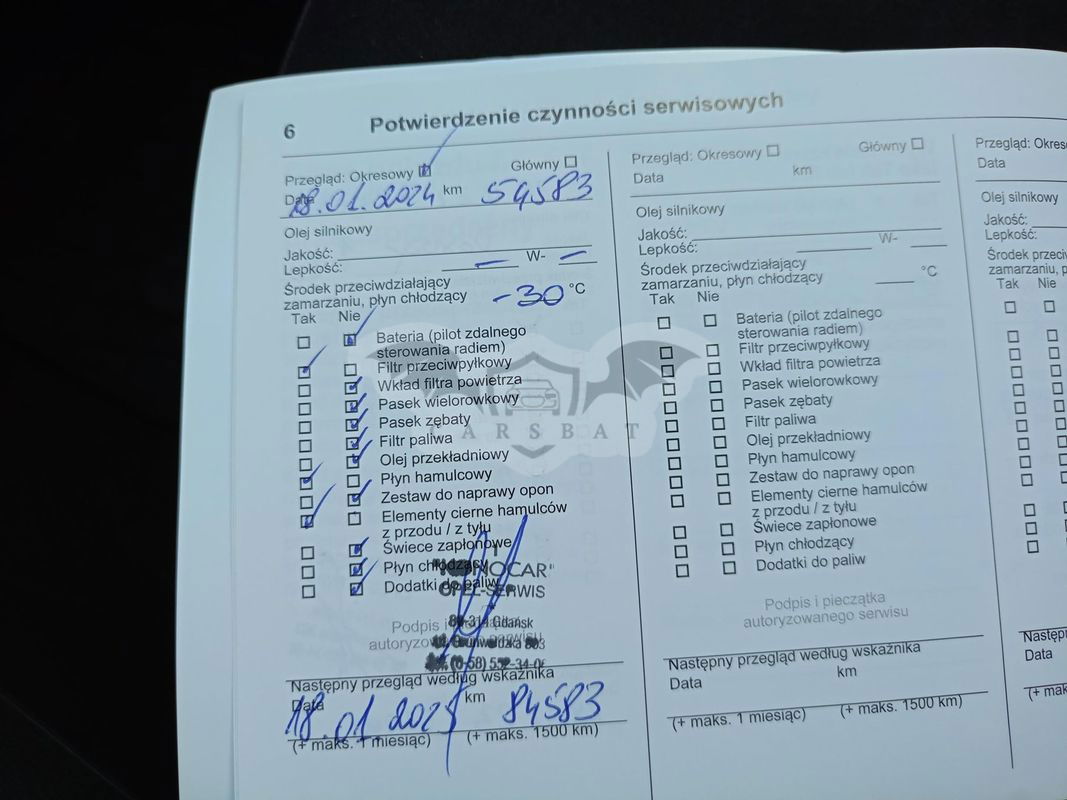 6 Potwierdzenie czynności serwisowych
Przegląd: Okresowy Główny
Data km
18.01.2024 54583
Olej silnikowy
Jakość:
Lepkość: – W- –
Środek przeciwdziałający
zamarzaniu, płyn chłodzący -30 °C
Tak Nie
Bateria (pilot zdalnego
sterowania radiem)
Filtr przeciwpyłkowy
Wkład filtra powietrza
Pasek wielorowkowy
Pasek zębaty
Filtr paliwa
Olej przekładniowy
Płyn hamulcowy
Zestaw do naprawy opon
Elementy cierne hamulców
z przodu / z tyłu
Świece zapłonowe
Płyn chłodzący
Dodatki do paliw
OCAR"
OPEL-SERWIS
Gdańsk
Podpis i
autoryzow
Następny przegląd według wskaźnika
Data km
18.01.2025 84583
(+ maks. 1 miesiąc) (+ maks. 1500 km)
Przegląd: Okresowy Główny
Data km
Olej silnikowy
Jakość:
Lepkość: W-
Środek przeciwdziałający
zamarzaniu, płyn chłodzący °C
Tak Nie
Bateria (pilot zdalnego
sterowania radiem)
Filtr przeciwpyłkowy
Wkład filtra powietrza
Pasek wielorowkowy
Pasek zębaty
Filtr paliwa
Olej przekładniowy
Płyn hamulcowy
Zestaw do naprawy opon
Elementy cierne hamulców
z przodu / z tyłu
Świece zapłonowe
Płyn chłodzący
Dodatki do paliw
Podpis i pieczątka
autoryzowanego serwisu
Następny przegląd według wskaźnika
Data km
(+ maks. 1 miesiąc) (+ maks. 1500 km)
Przegląd: Okres
Data
Olej silnikowy
Jakość:
Lepkość:
Środek przeciwdzia
zamarzaniu, płyn
Tak Nie
Następ
Data
(+ mak
CARSBAT